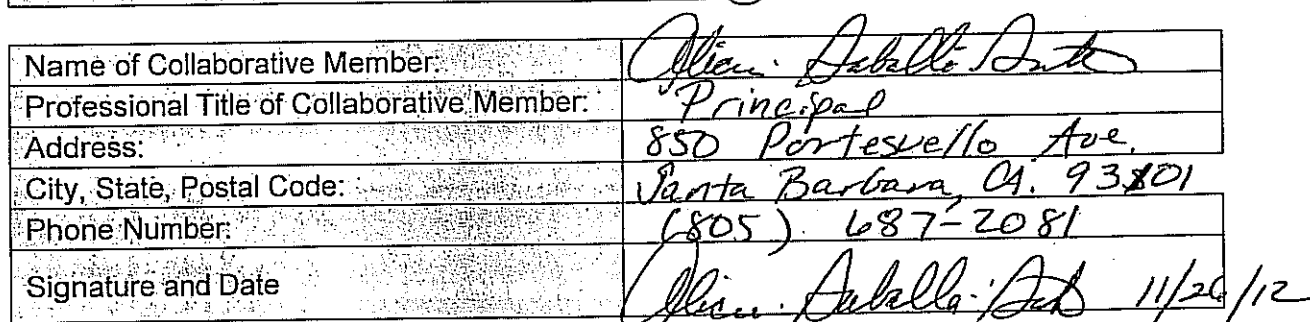 Name of Collaborative Member:
Professional Title of Collaborative Member: Principal
Address: 850 Portesuello Ave.
City, State, Postal Code: Santa Barbara, CA. 93101
Phone Number: (805). 687-2081
Signature and Date 11/26/12